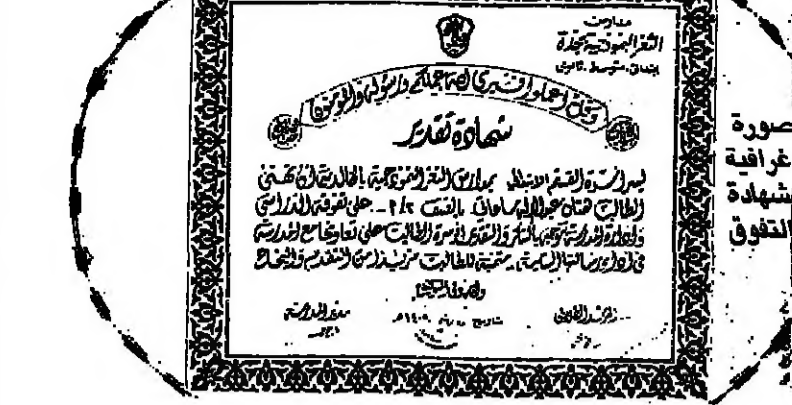 مدارس
الثغر النموذجية بجدة
ابتدائي - متوسط - ثانوي
وقل اعملوا فسيرى الله عملكم ورسوله والمؤمنون
شهادة تقدير
ليسر أسرة القسم الابتدائي بمدارس الثغر النموذجية بالخالدية أن تهنئ
الطالب هتان عبدالإله ساعاتي بالصف ٢/٢ - على تفوقه الدراسي
وإدارة المدرسة توجه بالشكر والتقدير لأسرة الطالب على تعاونها مع المدرسة
في أداء رسالتها السامية متمنية للطالب مزيداً من التقدم والنجاح
والله ولي التوفيق
مدير المدرسة
رائد الفصل
تاريخ ١٤٠٩هـ
صورة
غرافية
شهادة
التفوق